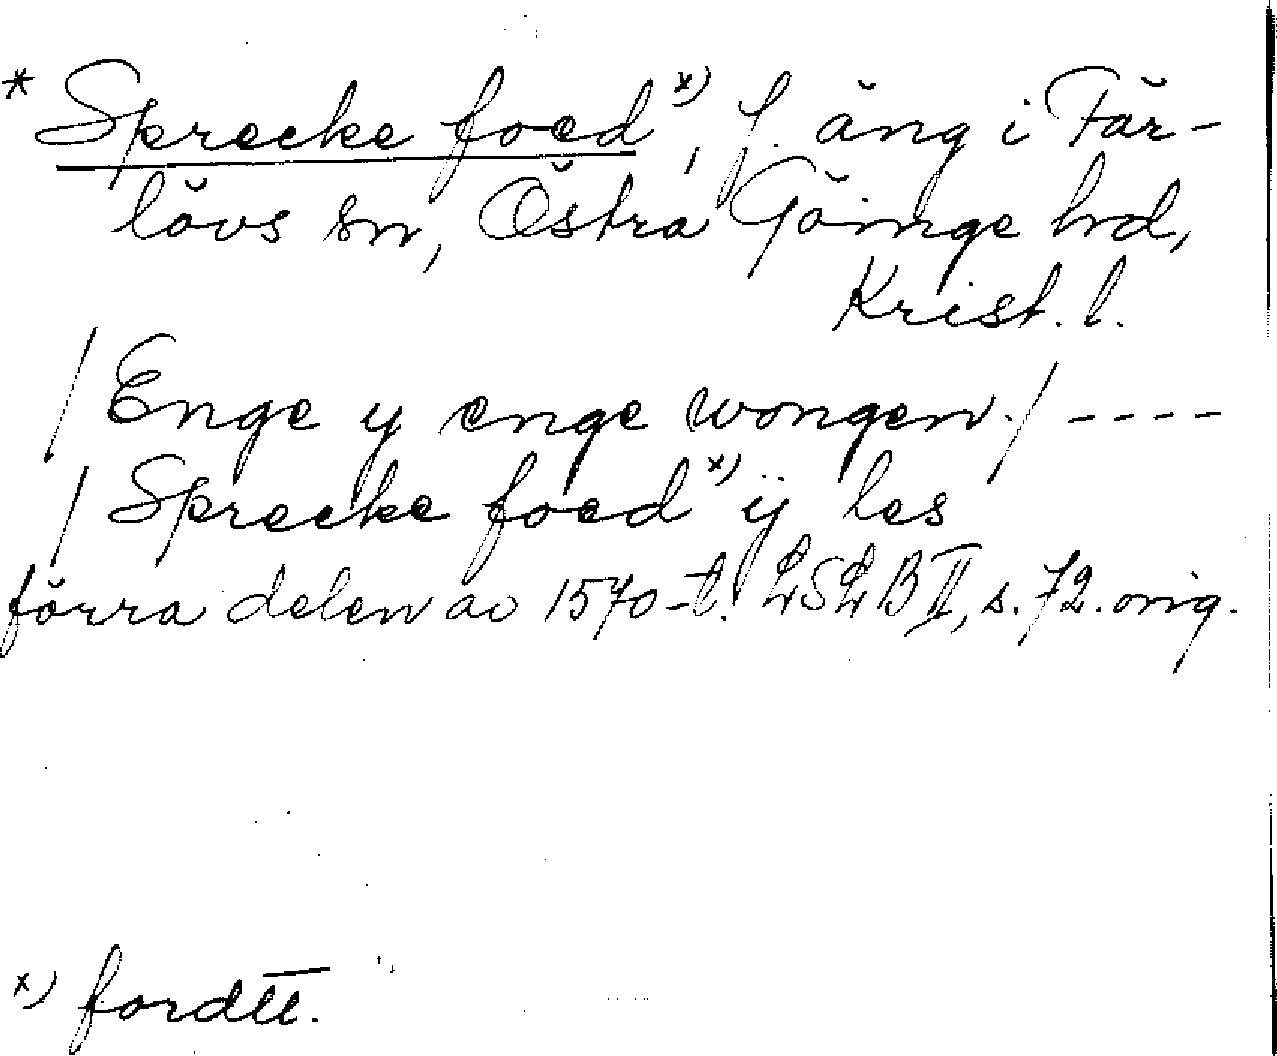 * Sprecke foed x), f. äng i Fär-
lövs sn, Östra Göinge hd,
Krist. l.
/ Enge y enge wongen. / ----
/ Sprecke foed x) ÿ les
förra delen av 1570-t. LSLB II, s. 72. orig.
x) fordU.